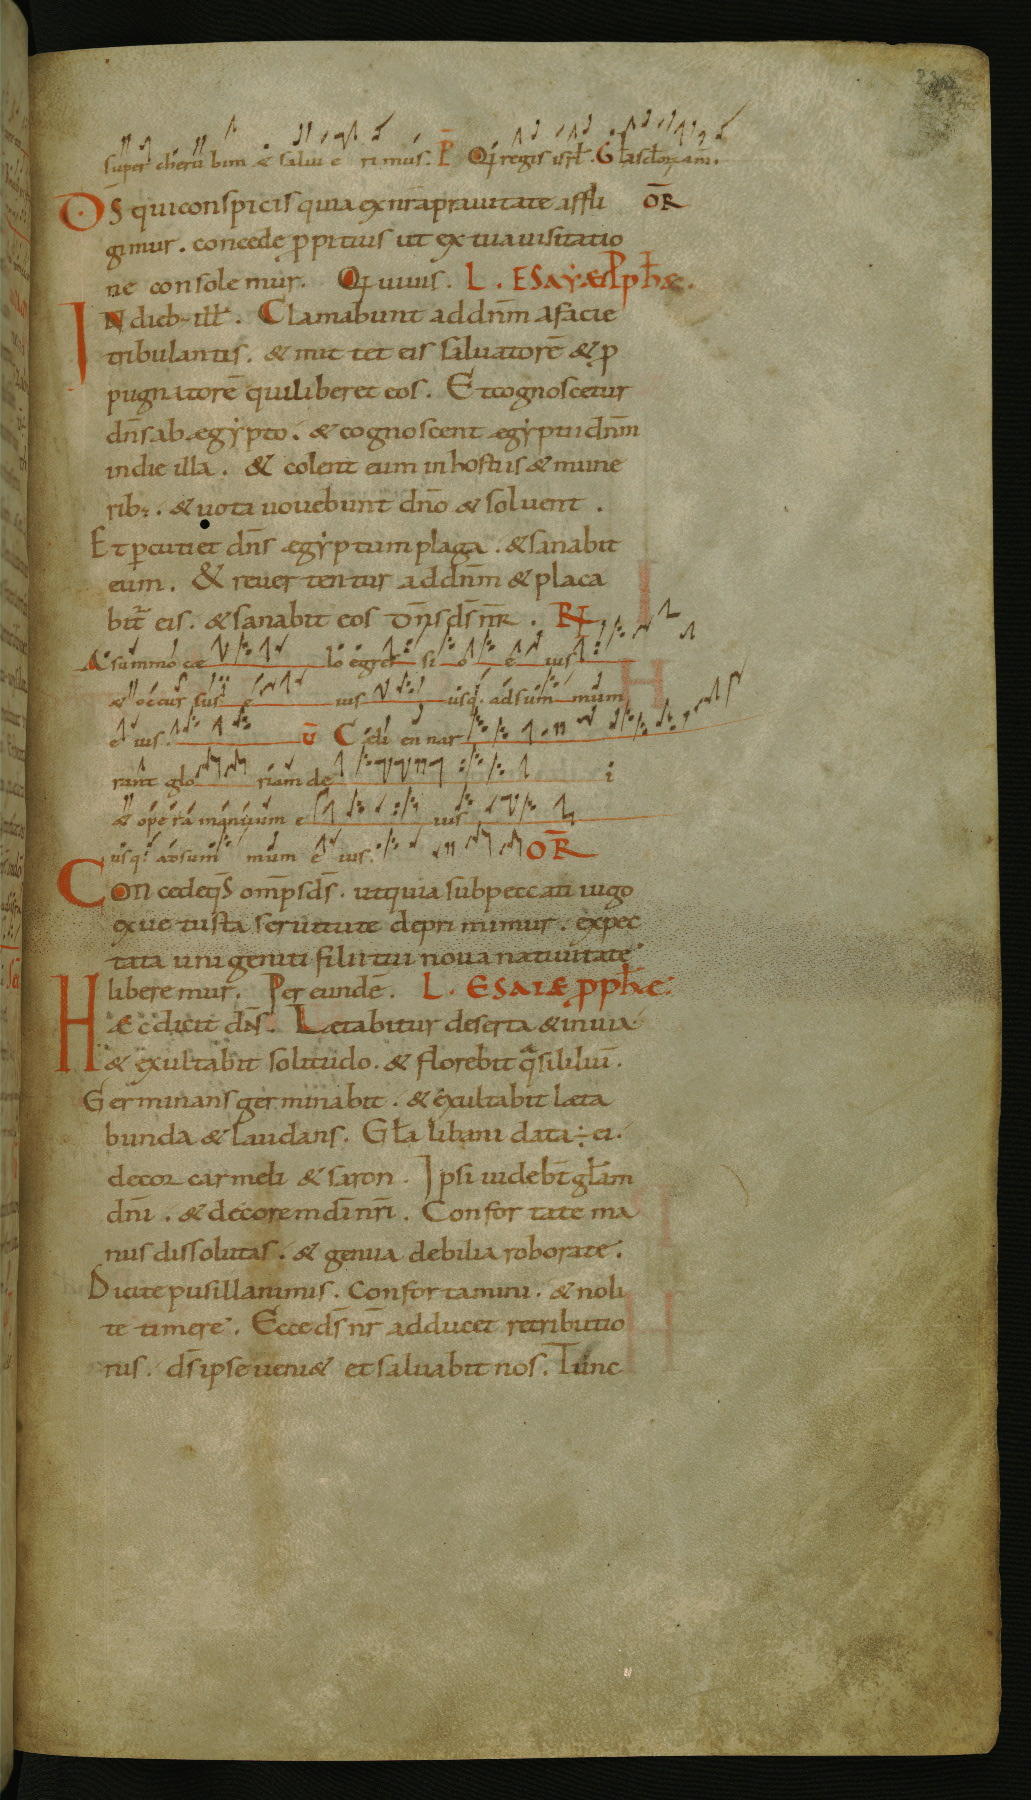 super cheru bim & salui e ri mus. P̄ Qi regis isrł. Głasctorz am̄.
D̄S qui conspicis quia ex nr̄a prauitate affli OR̄
gimur. concede ꝓpitius ut ex tua uisitatio
ne consolemur. Qi uiuis. L. ESAYAE PPħæ.
IN dieb- ill̄. Clamabunt ad dn̄m a facie
tribulantis. & mittet eis saluatorē & ꝓ
pugnatorē qui liberet eos. Et cognoscetur
dn̄s ab ægypto. & cognoscent ægyptii dn̄m
in die illa. & colent eum in hostiis & mune
rib;. & uota uouebunt dn̄o & soluent.
Et ꝑcutiet dn̄s ægyptum plaga. & sanabit
eum. & reuertentur ad dn̄m & placa
bit̄ eis. & sanabit eos dn̄s ds̄ nr̄. R
A summo cæ lo egres si o e ius
& occur sus e ius usq; ad sum mum
e ius. V̄ Cæli en nar
rant glo riam de i
& ope ra manuum e ius
usq; ad sum mum e ius. OR̄
Concede qs̄ omp̄s ds̄. ut quia sub peccati iugo
ex uetusta seruitute deprimimur. expec
tata unigeniti filii tui noua natiuitate
liberemur. Per eundē. L. ESAIAE PPħe.
HÆc dicit dn̄s. Lætabitur deserta & inuia
& exultabit solitudo. & florebit q̄si liliū.
Germinans germinabit. & exultabit læta
bunda & laudans. Gła libani data ÷ ei.
decor carmeli & saron. Ipsi uideb̄t głam
dn̄i. & decorem dī nr̄i. Confortate ma
nus dissolutas. & genua debilia roborate.
Dicite pusillanimis. Confortamini. & noli
te timere. Ecce ds̄ nr̄ adducet retributio
nis. ds̄ ipse ueni& et saluabit nos. Tunc